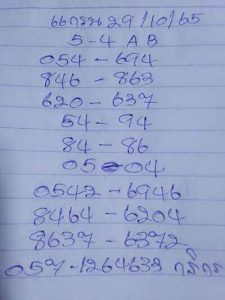 29/10/65
5-4 A B
054-694
846-863
620-637
54-94
84-86
05-04
0542-6946
8464-6204
8637-6372
057-1264639